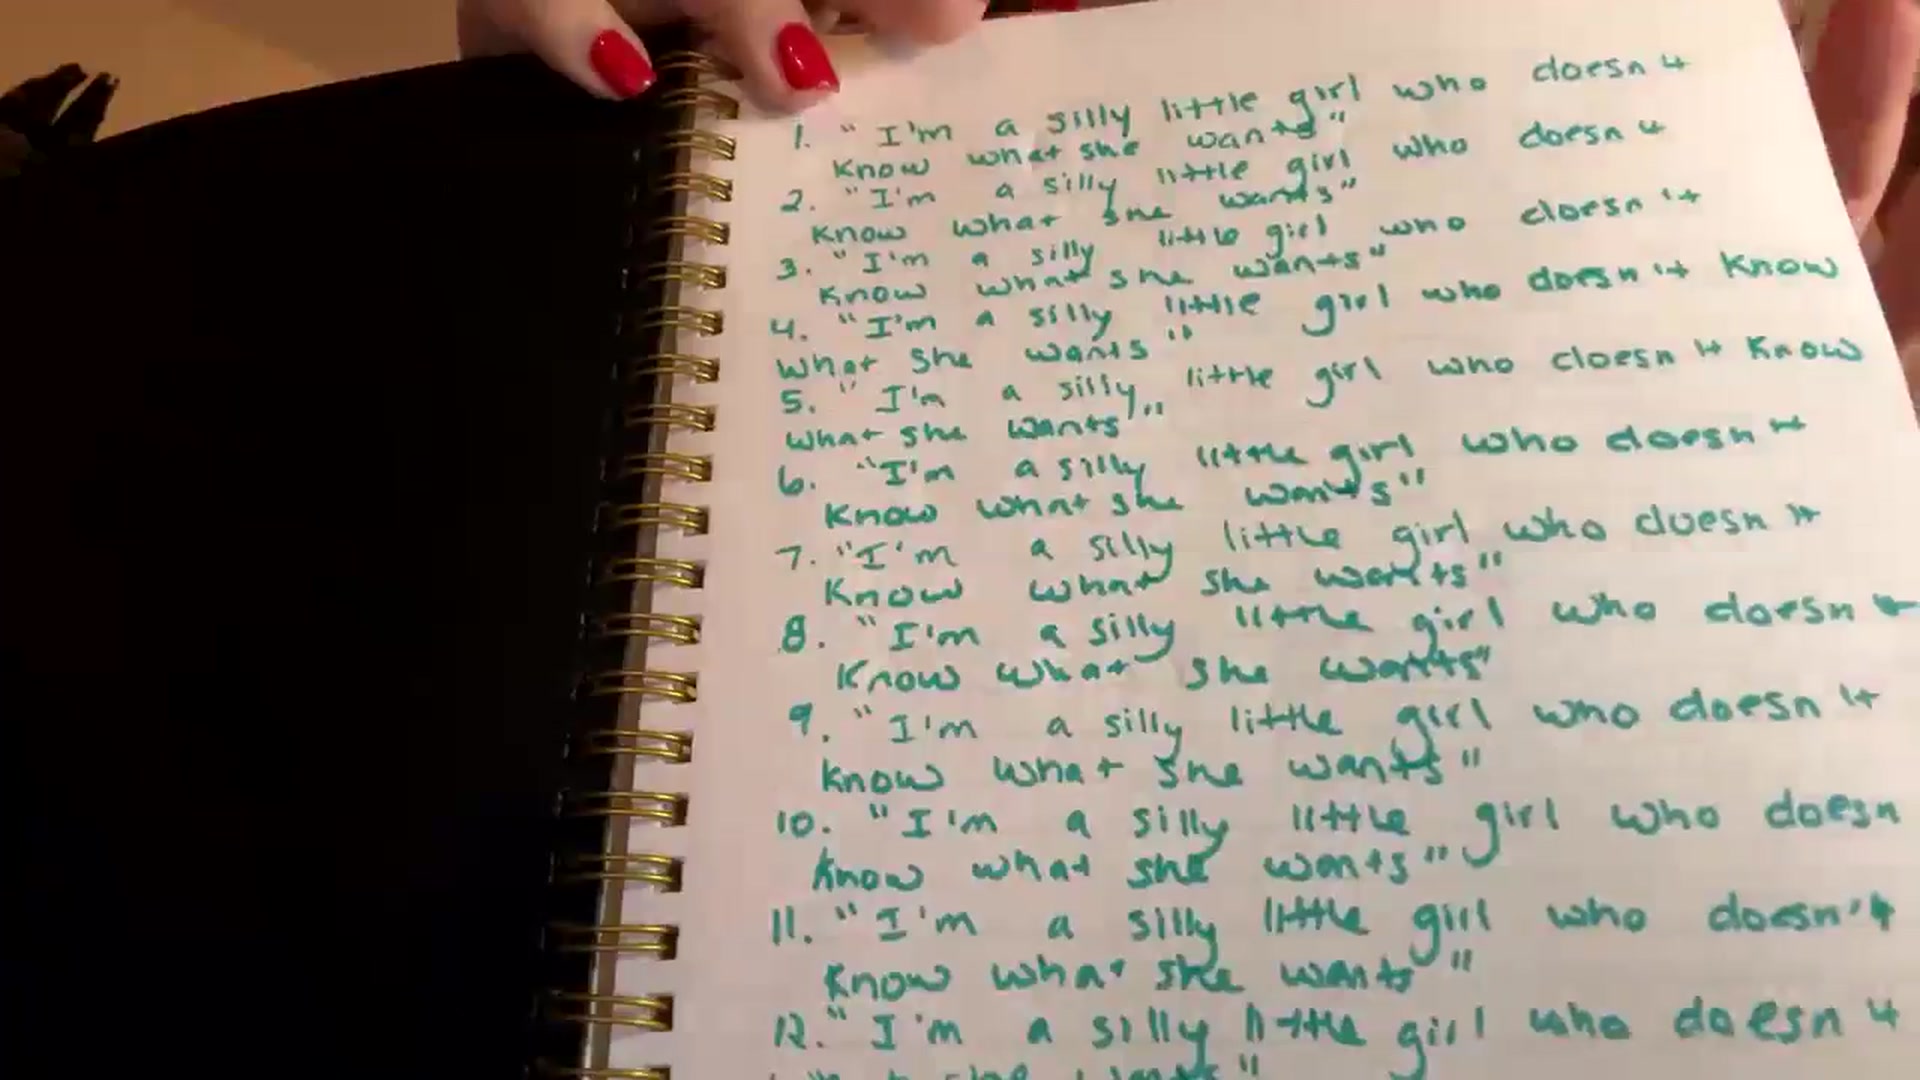 1. "I'm a silly little girl who doesn't
know what she wants"
2. "I'm a silly little girl who doesn't
know what she wants"
3. "I'm a silly little girl who doesn't
know what she wants"
4. "I'm a silly little girl who doesn't know
what she wants"
5. "I'm a silly little girl who doesn't know
what she wants"
6. "I'm a silly little girl who doesn't
know what she wants"
7. "I'm a silly little girl who doesn't
know what she wants"
8. "I'm a silly little girl who doesn't
know what she wants"
9. "I'm a silly little girl who doesn't
know what she wants"
10. "I'm a silly little girl who doesn
know what she wants"
11. "I'm a silly little girl who doesn't
know what she wants"
12. "I'm a silly little girl who doesn't
she wants"